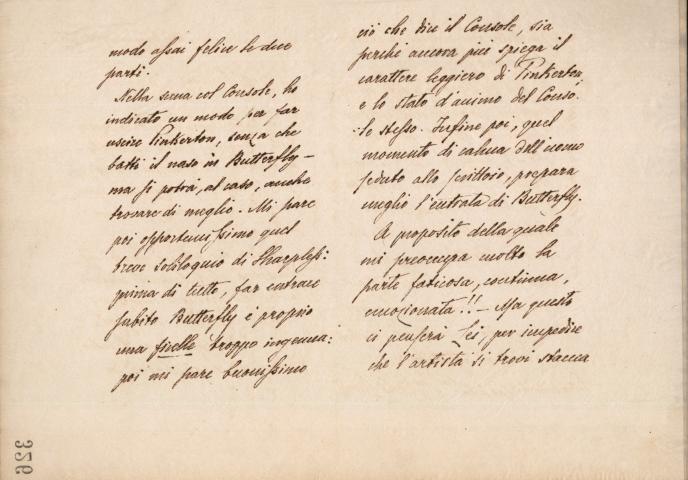 modo assai felice le due
parti.
Nella scena col Console, ho
indicato un modo per far
uscire Pinkerton, senza che
batti il naso in Butterfly —
ma si potrà, al caso, anche
trovare di meglio. Mi pare
poi opportunissimo quel
breve soliloquio di Sharpless:
prima di tutto, far entrare
subito Butterfly è proprio
una ficelle troppo ingenua:
poi mi pare buonissimo
ciò che dice il Console, sia
perchè ancora più spiega il
carattere leggiero di Pinkerton,
e lo stato d'animo del Conso-
le stesso. Infine poi, quel
momento di calma dell'uomo
seduto allo scrittoio, prepara
meglio l'entrata di Butterfly.
A proposito della quale
mi preoccupa molto la
parte faticosa, continua,
emozionata!! — Ma questo
ci penserà Lei, per impedire
che l'artista si trovi stacca
326